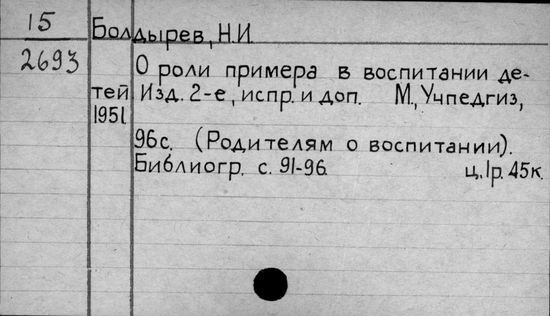 15
2693
Болдырев, Н.И.
О роли примера в воспитании де-
тей Изд. 2-е, испр. и доп. М., Учпедгиз,
1951
96с. (Родителям о воспитании).
Библиогр. с. 91-96. ц. 1р. 45к.